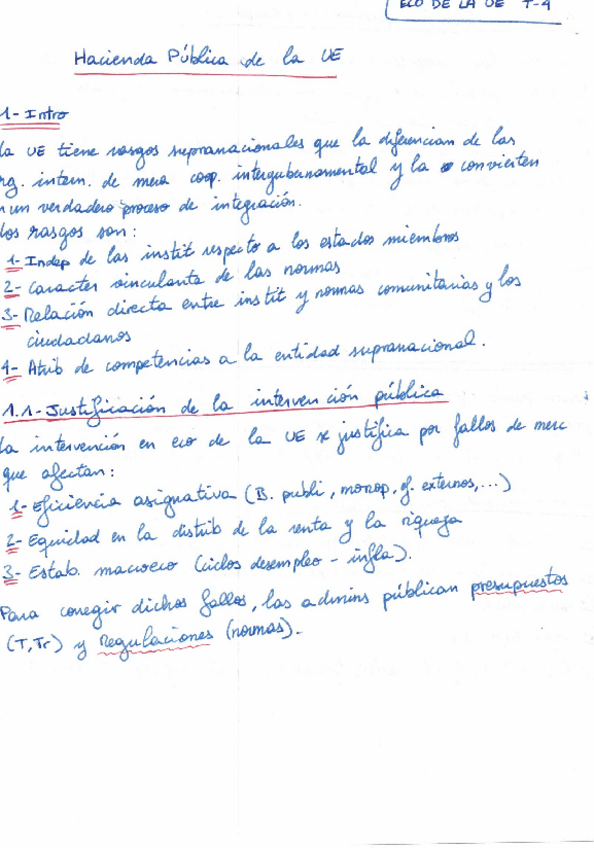 ECO DE LA UE T-4
Hacienda Pública de la UE
1- Intro
la UE tiene rasgos supranacionales que la diferencian de las
rg. intern. de mera coop. intergubernamental y la convierten
n un verdadero proceso de integración.
los rasgos son:
1- Indep de las instit respecto a los estados miembros
2- Caracter vinculante de las normas
3- Relación directa entre instit y normas comunitarias y los
ciudadanos
4- Atrib de competencias a la entidad supranacional.
1.1- Justificación de la intervención pública
la intervención en eco de la UE se justifica por fallos de merc
que afectan:
1- Eficiencia asignativa (B. publi, monop, ef. externos,...)
2- Equidad en la distrib de la renta y la riqueza
3- Estab. macroeco (ciclos desempleo - infla).
Para corregir dichos fallos, las admins públican presupuestos
(T, Tr) y Regulaciones (normas).